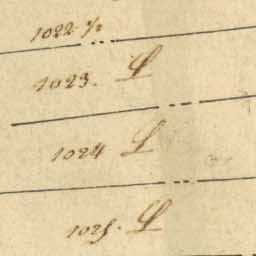 1022 ½
1023. L
1024 L
1025. L